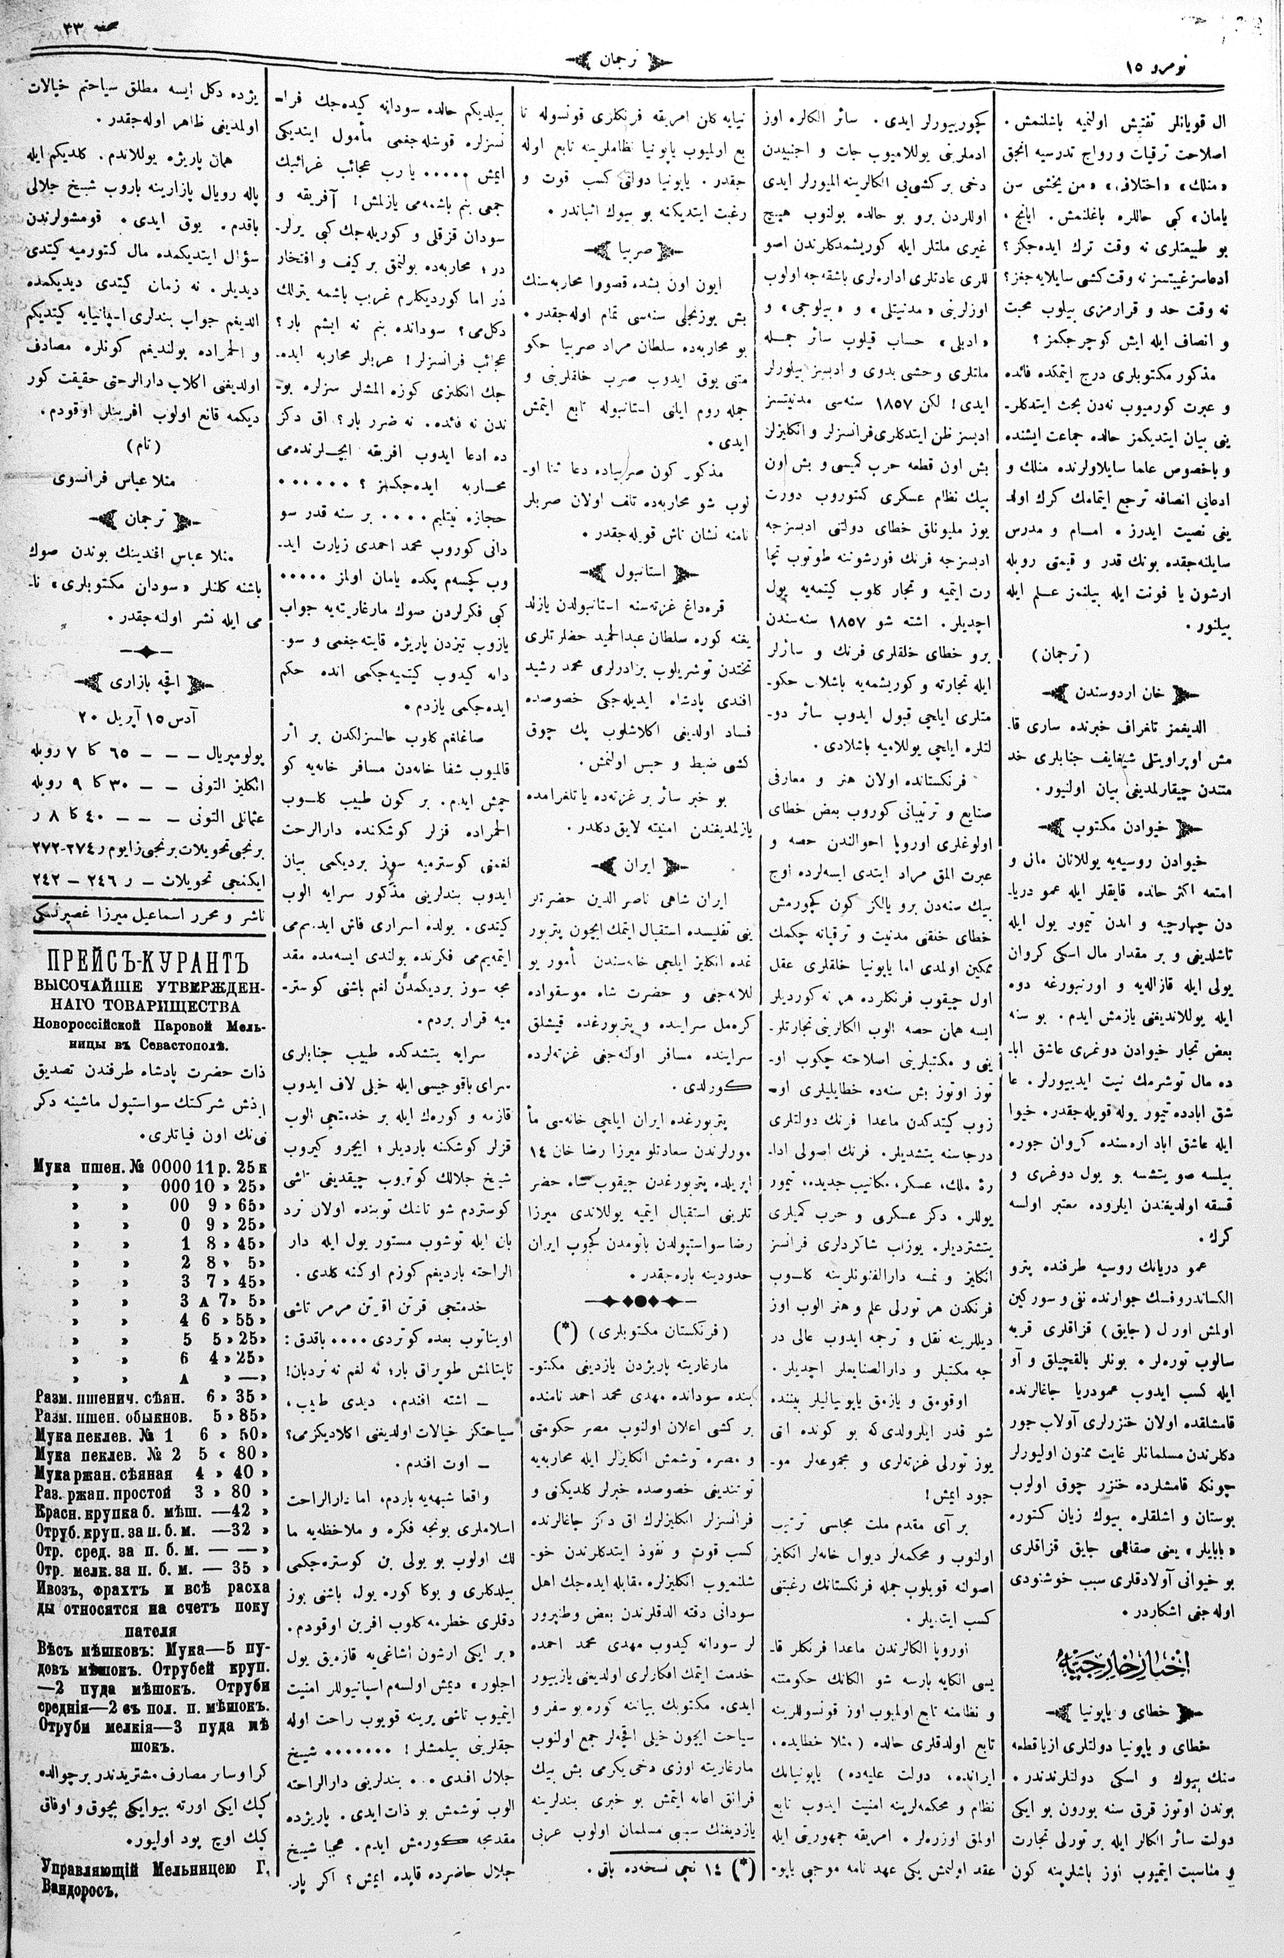 نومرو ١٥
ترجمان
صحيفه ٣٣
ال قويانلر تفتيش اولنميه باشلنمش.
اصلاحت ترقيات و رواج تدرسيه انجق
«منلك» «اختلاف» «من يخشى سن
يامان» كبى حاللره باغلنمش. اينانج.
بو طبيعتلرى نه وقت ترك ايده‌جكز؟
نه وقت حد و قرارمزى بيلوب محبت
و انصاف ايله ايش كوچرجكمز؟
مذكور مكتوبلرى درج ايتمكده فائده
و عبرت كورميوب نه‌دن بحث ايتدكلر-
ينى بيان ايتديكمز حالده جماعت ايشنده
و باخصوص علما سايلاولرنده منلك و
ادعانى انصافه ترجع ايتمامك كرك اولد
يغى نصيت ايدرز. امام و مدرس
سايلنه‌جقده بونك قدر و قيمتى روبله
ارشون يا فونت ايله بيلنمز علم ايله
بيلنور.
(ترجمان)
خان اردوسندن
الديغمز تلغراف خبرنده سارى قا-
متندن چيقارلمديغى بيان اولنيور.
خيوادن مكتوب
خيوادن روسيه‌يه يوللانان مال و
امتعه اكثر حالده قايقلر ايله عمو دريا-
دن چهارچيه و اندن تيمور يول ايله
تاشلديغى و بر مقدار مال اسكى كروان
يولى ايله قازاليه و اورنبورغه دوه
ايله يوللانديغى يازمش ايدم. بو سنه
بعض تجار خيوادن دوغرى عاشق ابا-
ده مال توشرمك نيت ايديبورلر. عا
شق ابادده تيمور يوله قويله‌جقدر. خيوا
ايله عاشق اباد اره‌سنده كروان جوره
بيلسه صو يتشسه بو يول دوغرى و
قسقه اولديغندن ايلروده معتبر اولسه
كرك.
عمو دريانك روسيه طرفنده پترو
الكساندروفسك جوارنده نفى و سوركين
اولمش اورل (جايق) قزاقلرى قريه
سالوب توره‌لر. بونلر بالقچيلق و آو
ايله كسب ايدوب عمودريا جاغالرنده
قامشلقده اولان خنزرلرى آولاب جور
دكلرندن مسلمانلر غايت ممنون اوليورلر
چونكه قامشلرده خنزر چوق اولوب
بوستان و اشلقلره بيوك زيان كتوره
بو خيوانى آولادقلرى سبب خوشنودى
اوله‌جغى اشكاردر.
اخبار خارجيه
خطاى و ياپونيا
خطاى و ياپونيا دولتلرى ازيا قطعه
سنك بيوك و اسكى دولتلرندندر.
بوندن اوتوز قرق سنه بورون بو ايكى
دولت سائر الكالر ايله بر تورلى تجارت
و مناسبت ايتميوب اوز باشلرينه كون
كچوريبورلر ايدى. سائر الكالره اوز
ادملرينى يوللاميوب جات و اجنبيدن
دخى بر كشى‌يى الكالرينه الميورلر ايدى
اوللردن برو بو حالده بولنوب هيچ
غيرى ملتلر ايله كوريشمدكلرندن اصو
للرى عادتلرى اداره‌لرى باشقه‌جه اولوب
اوزلرينى «مدنيتلى» و «بيلوجى» و
«ادبلى» حساب قيلوب سائر جمله
ملتلرى وحشى بدوى و ادبسز بيلورلر
ايدى! لكن ١٨٥٧ سنه‌سى مدنيتسز
ادبسز ظن ايتدكلرى فرانسزلر و انكليزلر
بش اون قطعه حرب كميسى و بش اون
بيك نظام عسكرى كتوروب دورت
يوز مليونلق خطاى دولتى ادبسزجه
ادبسزجه فرنك قورشوننه طوتوب تجا
رت ايتميه و تجار كلوب كيتمه‌يه يول
اچديلر. اشته شو ١٨٥٧ سنه‌سندن
برو خطاى خلقلرى فرنك و سائرلر
ايله تجارته و كوريشمه‌يه باشلاب حكو-
متلرى ايلچى قبول ايدوب سائر دو-
لتلره ايلچى يوللاميه باشلادى.
فرنكستانده اولان هنر و معارفى
صنايع و ترتيباتى كوروب بعض خطاى
اولوغلرى اوروپا احوالندن حصه و
عبرت المق مراد ايتدى ايسه‌لرده اوج
بيك سنه‌دن برو يالكز كون كچورمش
خطاى خلقى مدنيت و ترقياته چكمك
ممكين اولمدى اما ياپونيا خلقلرى عقل
اول چيقوب فرنكلرده هر نه كورديلر
ايسه همان حصه الوب الكالرينى تجارتلر-
ينى و مكتبلرينى اصلاحته چكوب او-
توز اوتوز بش سنه‌ده خطايليلرى او-
زوب كيتدكدن ماعدا فرنك دولتلرى
درجاسنه يتشديلر. فرنك اصولى ادا-
رۀ ملك، عسكر، مكاتيب جديده، تيمور
يوللر. دكز عسكرى و حرب كميلرى
يتشترديلر. يوزاب شاكردلرى فرانسز
انكليز و نمسه دارالفنونلرينه كلوب
فرنكدن هر تورلى علم و هنر الوب اوز
ديللرينه نقل و ترجمه ايدوب عالى در
جه مكتبلر و دارالصنايعلر اچديلر.
اوقومق و يازمق ياپونياليلر بيننده
شو قدر ايلرولدى‌كه بو كونده انى
يوز تورلى غزته‌لرى و مجموعه‌لر مو-
جود ايمش!
بر آى مقدم ملت مجاسى ترتيب
اولنوب و محكمه‌لر ديوال خانه‌لر انكليز
اصولنه قويلوب جمله فرنكستانك رغبتنى
كسب ايتديلر.
اوروپا الكالرندن ماعدا فرنكلر قا-
يسى الكايه بارسه شو الكانك حكومتنه
و نظامنه تابع اولميوب اوز قونسوللرينه
تابع اولدقلرى حالده (مثلا خطايده.
ايرانده، دولت عليه‌ده) ياپونيانك
نظام و محكمه‌لرينه امنيت ايدوب تابع
اولمق اوزره‌لر. امريقه جمهوريتى ايله
عقد اولنمش يكى عهد نامه موجبى ياپو-
نيايه كلن امريقه فرنكلرى قونسوله تا
بع اولميوب ياپونيا نظاملرينه تابع اوله
جقدر. ياپونيا دولتى كسب قوت و
رغبت ايتديكنه بو بيوك اثباتدر.
صربيا
ايون اون بشده قصووا محاربه‌سنك
بش يوزنجى سنه‌سى تمام اوله‌جقدر.
بو محاربه‌ده سلطان مراد صربيا حكو
متنى يوق ايدوب صرب خلقلرينى و
جمله روم ايلنى استانبوله تابع ايتمش
ايدى.
مذكور كون صربياده دعا ثنا او-
لوب شو محاربه‌ده تلف اولان صربلر
نامنه نشان تاش قويله‌جقدر.
استانبول
قره‌داغ غزته‌سنه استانبولدن يازلد
يغنه كوره سلطان عبدالحميد حضرتلرى
تختدن توشريلوب برادرلرى محمد رشيد
افندى پادشاه ايديله‌جكى خصوصده
فساد اولديغى اكلاشلوب پك چوق
كشى ضبط و حبس اولنمش.
بو خبر سائر بر غزته‌ده يا تلغرامده
يازلمديغندن امنيته لايق دكلدر.
ايران
ايران شاهى ناصر الدين حضرتلر
ينى تفليسده استقبال ايتمك ايچون پتربور
غده انكليز ايلچى خانه‌سندن مأمور يو
للانه‌جغى و حضرت شاه موسقواده
كره‌مل سراينده و پتربورغده قيشلق
سراينده مسافر اولنه‌جغى غزته‌لرده
كورلدى.
پتربورغده ايران ايلچى خانه‌سى مأ
مورلرندن سعادتلو ميرزا رضا خان ١٤
اپريلده پتربورغدن چيقوب شاه حضر
تلرينى استقبال ايتميه يوللاندى ميرزا
رضا سواستپولدن باتومدن كچوب ايران
حدودينه باره‌جقدر.
(فرنكستان مكتوبلرى) (*)
مارغاريته پاريژدن يازديغى مكتو-
بنده سودانده مهدى محمد احمد نامنده
بر كشى اعلان اولنوب مصر حكومتى
و مصره توشمش انكليزلر ايله محاربه‌يه
توتنديغى خصوصده خبرلر كلديكنى و
فرانسزلر انكليزلرك اق دكز جاغالرنده
كسب قوت و نفوذ ايتدكلرندن خو-
شلنميوب انكليزلره مقابله ايده‌جك اهل
سودانى دقته الدقلرندن بعض وطنپرور
لر سودانه كيدوب مهدى محمد احمده
خدمت ايتمك افكارلرى اولديغى يازييور
ايدى. مكتوبك بياننه كوره بو سفر و
سياحت ايچون خيلى اقچه‌لر جمع اولنوب
مارغاريته اوزى دخى يكرمى بش بيك
فرانق اعانه ايتمش بو خبرى بندلرينه
يازديغنك سببى مسلمان اولوب عربى
(*) ١٤ نجى نسخه‌ده باق.
بيلديكم حالده سودانه كيده‌جك فرا-
نسزلره قوشله‌جغمى مأمول ايتديكى
ايمش ..... يا رب عجائب غرائبك
جمى بنم باشمه‌مى يازلمش! آفريقه و
سودان قزقلى و كوريله‌جك كبى يرلر-
در؛ محاربه‌ده بولنمق بر كيف و افتخار
در اما كورديكلرم غريب باشمه يترلك
دكل‌مى؟ سودانده بنم نه ايشم بار؟
عجائب فرانسزلر! عربلر محاربه ايده-
جك انكليزى كوزه المشلر سزلره بو-
ندن نه فائده. نه ضرر بار؟ اق دكز
ده ادعا ايدوب افريقه ايچلرنده‌مى
محاربه ايده‌جكسز؟ ......
حجازه نيتليم .... بر سنه قدر سو
دانى كوروب محمد احمدى زيارت ايد-
وب كچسه‌م پكده يامان اولماز .....
كبى فكرلردن صوك مارغاريته‌يه جواب
يازوب تيزدن پاريژه قايته‌جغمى و سو-
دانه كيدوب كيتميه‌جكمى انده حكم
ايده‌جكمى يازدم.
صاغلغم كلوب حالسزلكدن بر اثر
قالميوب شفا خانه‌دن مسافر خانه‌يه كو
چمش ايدم. بر كون طبيب كلوب
الحمراده قزلر كوشكنده دارالرحت
لغمنى كوسترميه سوز برديكمى بيان
ايدوب بندلرينى مذكور سرايه الوب
كيتدى. يولده اسرارى فاش ايديم‌مى
ايتميه‌يم‌مى فكرنده بولندى ايسه‌مده مقد
مجه سوز برديكمدن لغم باشنى كوستر-
ميه قرار بردم.
سرايه يتشدكده طبيب جنابلرى
سراى باقوجيسى ايله خيلى لاف ايدوب
قازمه و كوره‌ك ايله بر خدمتجى الوب
قزلر كوشكنه بارديلر؛ ايچرو كيروب
شيخ جلالك كوتروب چيقديغى تاشى
كوستردم شو تاشك توبنده اولان نرد
بان ايله توشوب مستور يول ايله دار
الراحته بارديغم كوزم اوكنه كلدى.
خدمتجى قرتن اقرتن مرمر تاشى
اويناتوب بعده كوتردى .... باقدق:
تابتالمش طوپراق بار؛ نه لغم نه نردبان!
ـ اشته افندم، ديدى طبيب.
سياحتكز خيالات اولديغنى اكلاديكزمى؟
ـ اوت افندم.
واقعا شبهه‌يه باردم. اما دارالراحت
اسلاملرى بونجه فكره و ملاحظه‌يه ما
لك اولوب بو يولى بن كوستره‌جكمى
بيلدكلرى و بوكا كوره يول باشنى بوز
دقلرى خطرمه كلوب افرين اوقودم.
«بر ايكى ارشون اشاغى‌يه قازه‌يق يول
اجلور» ديمش اولسه‌م اسپانيوللر امنيت
ايتميوب تاشى يرينه قويوب راحت اوله
جقلرينى بيلمشلر! ....... شيخ
جلال افندى ... بندلرينى دارالراحته
الوب توشمش بو ذات ايدى. پاريژده
مقدمجه كوره‌مش ايدم. عجبا شيخ
جلال حاضرده قايده ايمش؟ اكر پار-
يژده دكل ايسه مطلق سياحتم خيالات
اولمديغى ظاهر اوله‌جقدر.
همان پاريژه يوللاندم. كلديكم ايله
پاله رويال پازارينه باروب شيخ جلالى
باقدم. يوق ايدى. قومشولرندن
سؤال ايتديكمده مال كتورميه كيتدى
ديديلر. نه زمان كيتدى ديديكمده
الديغم جواب بندلرى اسپانيايه كيتديكم
و الحمراده بولنديغم كونلره مصادف
اولديغنى اكلاب دارالرحتى حقيقت كور
ديكمه قانع اولوب افرينلر اوقودم.
(تام)
مثلا عباس فرانسوى
ترجمان
مثلا عباس افندينك بوندن صوك
باشنه كلنلر «سودان مكتوبلرى» نا-
مى ايله نشر اولنه‌جقدر.
اقچه بازارى
آدس ١٥ آپريل ٢٠
پولومپريال – – – ٦٥ كا ٧ روبله
انكليز التونى – – ٣٠ كا ٩ روبله
عثمانلى التونى – – – ٤٠ كا ٨ ر
برنجى تحويلات برنجى زايوم ر ٢٧٤-٢٧٢
ايكنجى تحويلات – ر ٢٤٦ – ٢٤٢
ناشر و محرر اسماعيل ميرزا غصپرنسكى
ПРЕЙСЪ-КУРАНТЪ
ВЫСОЧАЙШЕ УТВЕРЖДЕН-
НАГО ТОВАРИЩЕСТВА
Новороссійской Паровой Мель-
ницы въ Севастополѣ.
ذات حضرت پادشاه طرفندن تصديق
اولنمش شركتك سواستپول ماشينه دكر
منى‌نك اون فياتلرى.
Мука пшен. № 0000 11 р. 25 к
» » 000 10 » 25»
» » 00 9 » 65»
» » 0 9 » 25»
» » 1 8 » 45»
» » 2 8 » 5»
» » 3 7 » 45»
» » 3 А 7» 5»
» » 4 6 » 55»
» » 5 5 » 25»
» » 6 4 » 25»
» » А » — »
Разм. пшенич. сѣян. 6 » 35 »
Разм. пшен. обыкнов. 5 » 85»
Мука пеклев. № 1 6 » 50»
Мука пеклев. № 2 5 « 80»
Мука ржан. сѣяная 4 » 40 »
Раз. ржан. простой 3 » 80 »
Красн. крупка б. мѣш. —42 »
Отруб. круп. за п. б. м. —32 »
Отр. сред. за п. б. м. — — »
Отр. мелк. за п. б. м. — 35 »
Ивозъ, фрахт и всѣ расхо
ды относятся на счетъ поку
пателя
Вѣсъ мѣшковъ: Мука—5 пу-
довъ мѣшокъ. Отрубей круп.
—2 пуда мѣшокъ. Отруби
средния—2 съ пол. п. мѣшокъ.
Отруби мелкія—3 пуда мѣ
шокъ.
كرا و سائر مصارف مشتريدندر بر چوالده
كپك ايكى اورته بيوايكى بچوق و اوفاق
كپك اوچ پود اوليور.
Управляющій Мельницею Г.
Вандоросъ.